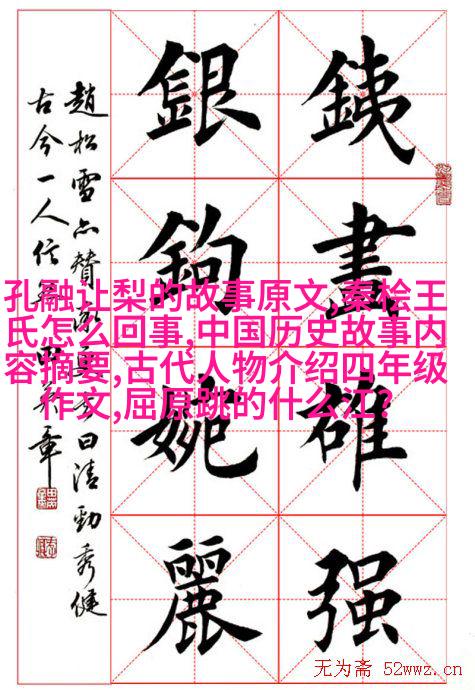 銕畫雄强
銀鉤婉麗
趙松雪亦贊曰清勁秀健
古今一人信章
孔融让梨的故事原文,秦桧王
氏怎么回事,中国历史故事内
容摘要,古代人物介绍四年级
作文,屈原跳的什么江?
无为斋 52wwz.cn